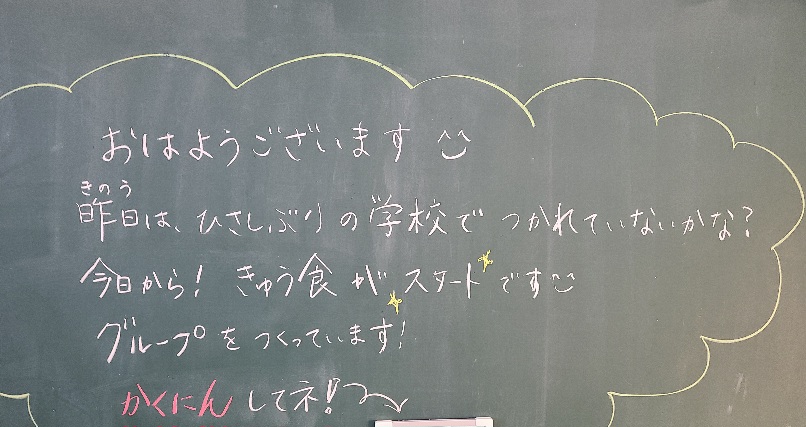 おはようございます
きのう
昨日は、ひさしぶりの学校で つかれていないかな?
今日から! きゅう食が スタート です
グループを つくっています!
かくにん してネ!